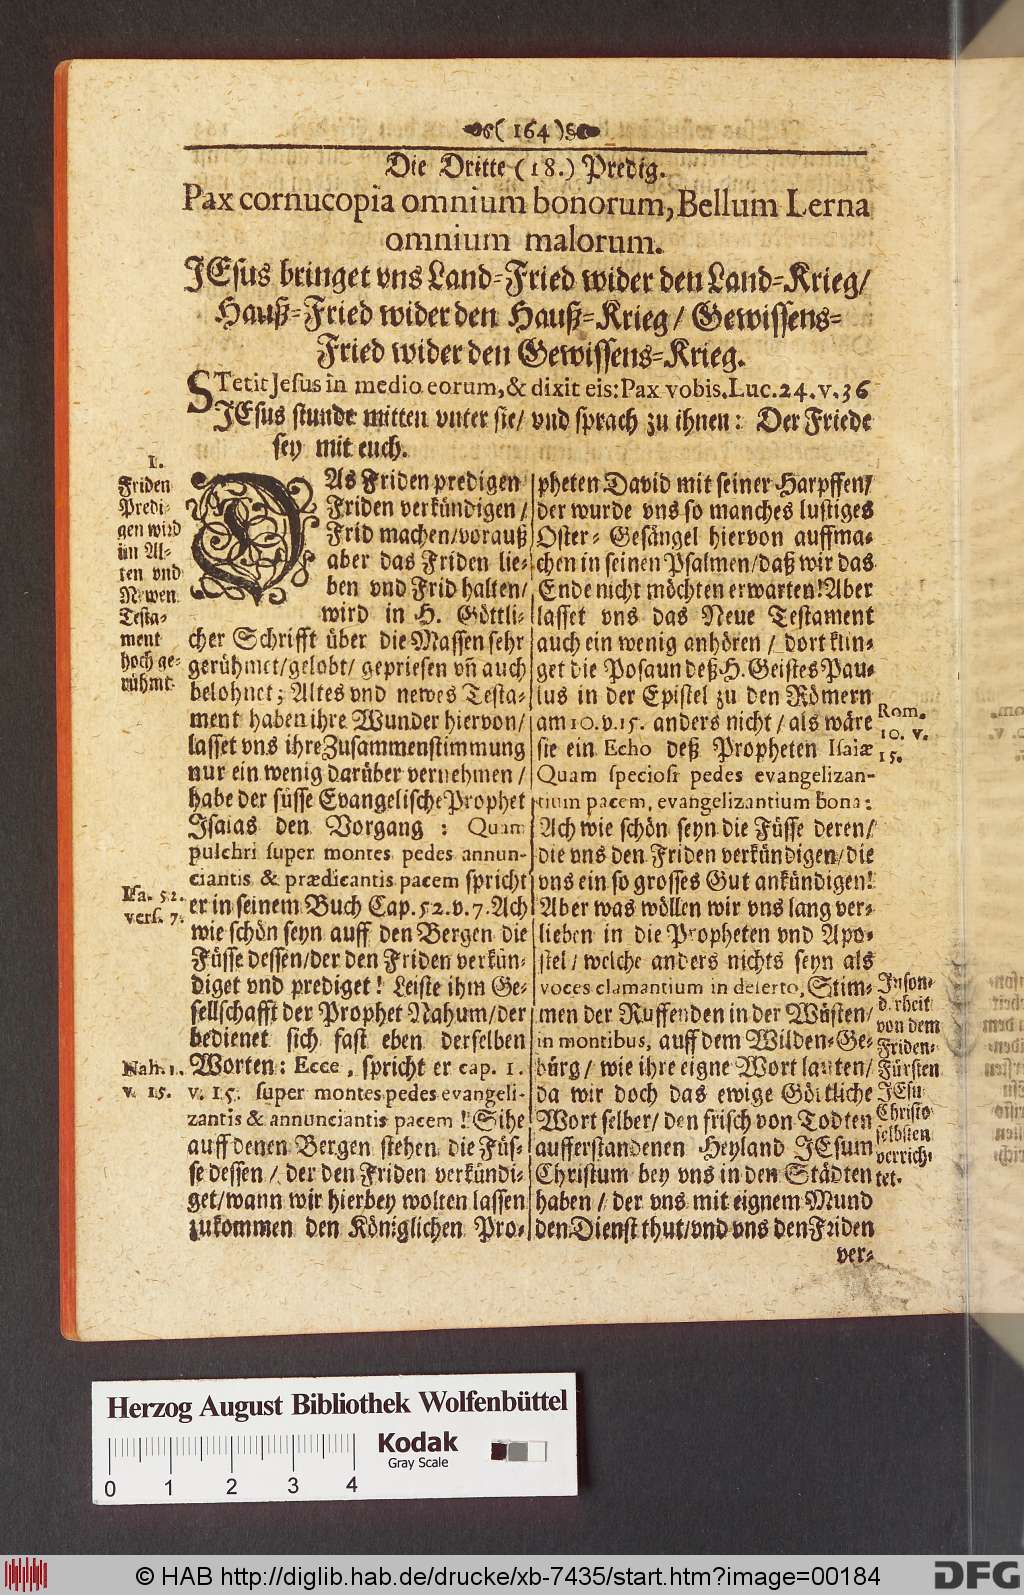 ( 164 )
Die Dritte (18.) Predig.
Pax cornucopia omnium bonorum, Bellum Lerna
omnium malorum.
JEsus bringet vns Land-Fried wider den Land-Krieg/
Hauß-Fried wider den Hauß-Krieg / Gewissens-
Fried wider den Gewissens-Krieg.
STetit Jesus in medio eorum, & dixit eis: Pax vobis. Luc. 24. v. 36
JEsus stunde mitten vnter sie/ vnd sprach zu ihnen: Der Friede
sey mit euch.
1.
Friden
Predi-
gen wird
im Al-
ten vnd
Newen
Testa-
ment
hoch ge-
rühmt.
DAs Friden predigen
Friden verkündigen /
Frid machen/vorauß
aber das Friden lie-
ben vnd Frid halten/
wird in H. Göttli-
cher Schrifft über die Massen sehr
gerühmet/gelobt/ gepriesen vñ auch
belohnet; Altes vnd newes Testa-
ment haben ihre Wunder hiervon/
lasset vns ihre Zusammenstimmung
nur ein wenig darüber vernehmen /
habe der süsse Evangelische Prophet
Isaias den Vorgang : Quam
pulchri super montes pedes annun-
ciantis & prædicantis pacem spricht
er in seinem Buch Cap. 52. v. 7. Ach
wie schön seyn auff den Bergen die
Füsse dessen/der den Friden verkün-
diget vnd prediget! Leiste ihm Ge-
sellschafft der Prophet Nahum/der
bedienet sich fast eben derselben
Worten: Ecce, spricht er cap. 1.
v. 15. super montes pedes evangeli-
zantis & annunciantis pacem ! Sihe
auff denen Bergen stehen die Füs-
se dessen / der den Friden verkündi-
get/wann wir hierbey wolten lassen
zukommen den Königlichen Pro-
Isa. 52.
vers. 7.
Nah. 1.
v. 15.
pheten David mit seiner Harpffen/
der wurde vns so manches lustiges
Oster- Gesängel hiervon auffma-
chen in seinen Psalmen/daß wir das
Ende nicht möchten erwarten! Aber
lasset vns das Neue Testament
auch ein wenig anhören / dort klin-
get die Posaun deß H. Geistes Pau-
lus in der Epistel zu den Römern
am 10. v. 15. anders nicht / als wäre
sie ein Echo deß Propheten Isaiæ
Quam speciosi pedes evangelizan-
tium pacem, evangelizantium bona:
Ach wie schön seyn die Füsse deren/
die vns den Friden verkündigen/die
vns ein so grosses Gut ankündigen!
Aber was wöllen wir vns lang ver-
lieben in die Propheten vnd Apo-
stel / welche anders nichts seyn als
voces clamantium in deserto, Stim-
men der Ruffenden in der Wüsten/
in montibus, auff dem Wilden-Ge-
bürg / wie ihre eigne Wort lauten/
da wir doch das ewige Göttliche
Wort selber/ den frisch von Todten
aufferstandenen Heyland JEsum
Christum bey vns in den Städten
haben / der vns mit eignem Mund
den Dienst thut/vnd vns den Friden
ver-
Rom.
10. v.
15.
Inson-
derheit
von dem
Friden-
Fürsten
JEsu
Christo
selbsten
verrich-
tet.
Herzog August Bibliothek Wolfenbüttel
Kodak
Gray Scale
0 1 2 3 4
© HAB http://diglib.hab.de/drucke/xb-7435/start.htm?image=00184
DFG